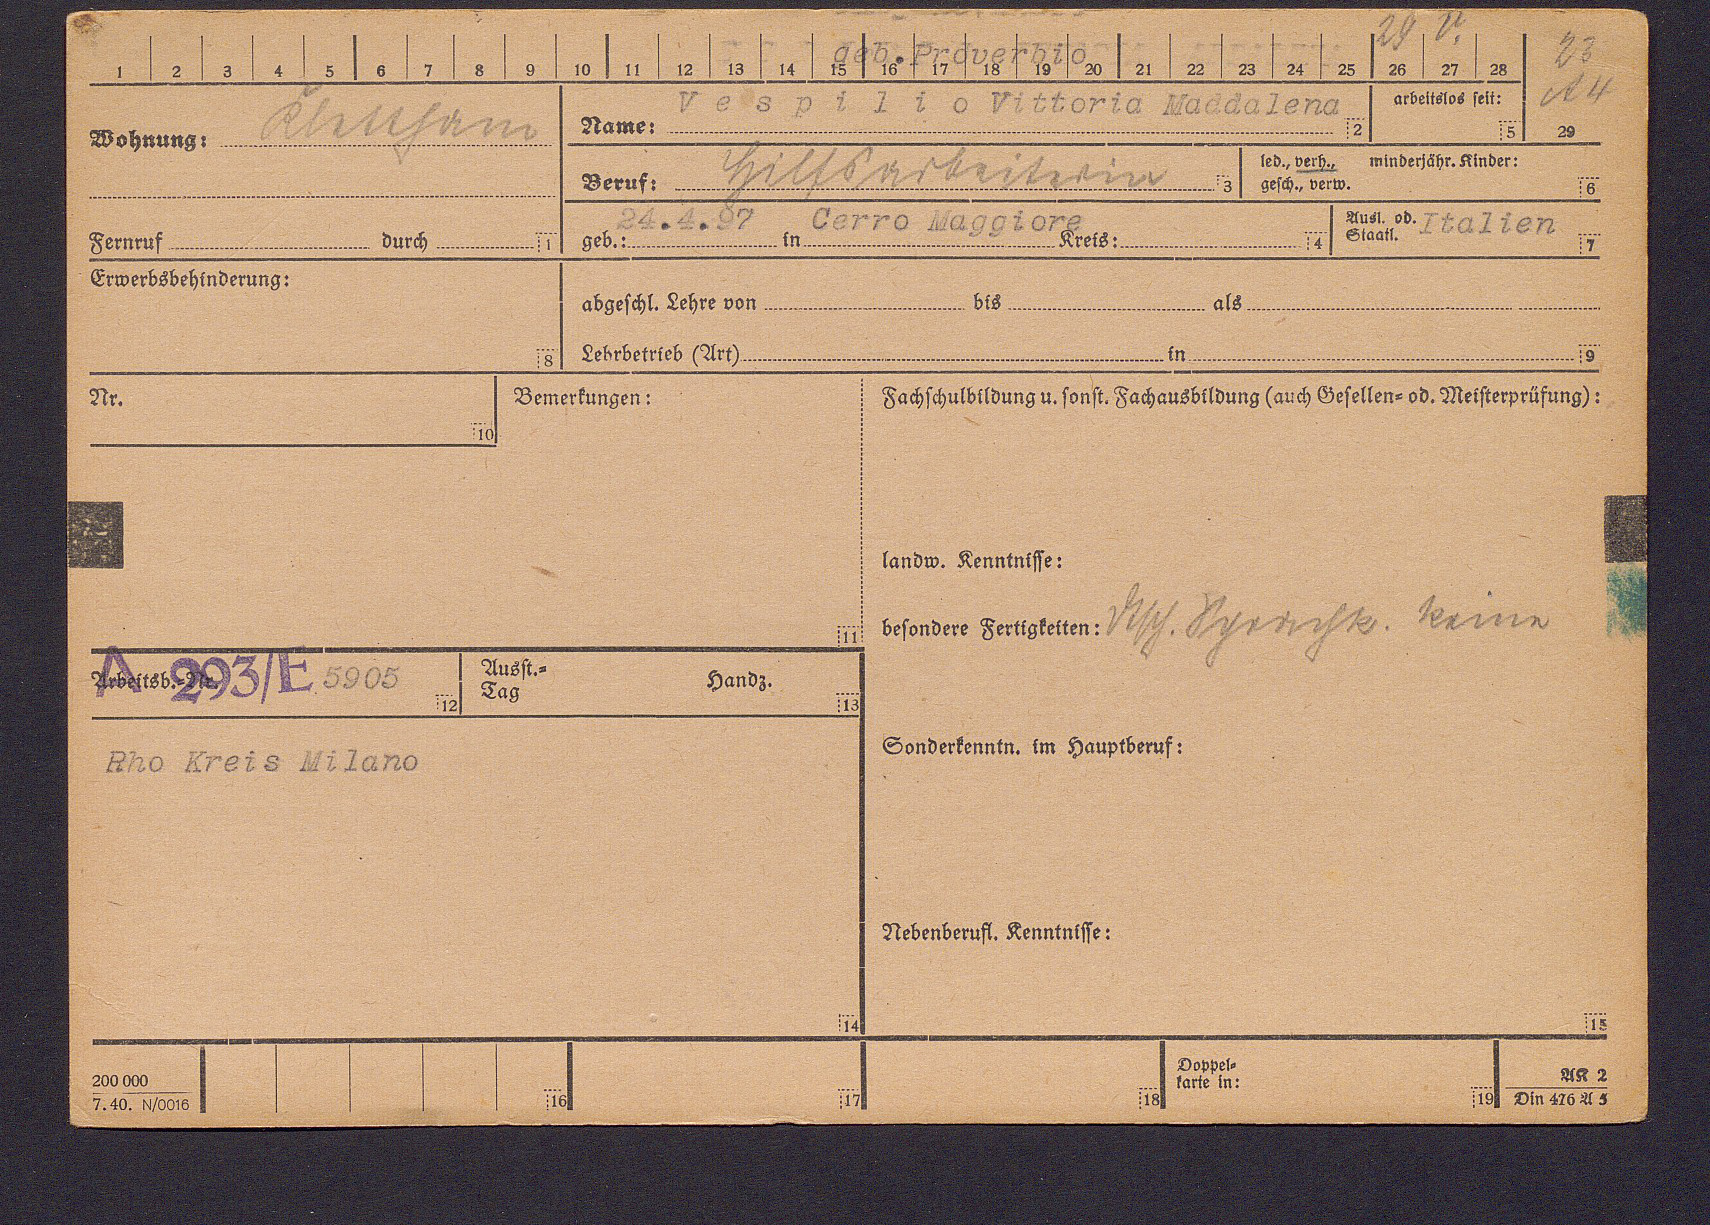 29 V.
geb. Proverbio
1 2 3 4 5 6 7 8 9 10 11 12 13 14 15 16 17 18 19 20 21 22 23 24 25 26 27 28
23
A4
29
Wohnung: Klettham
Name: Vespilio Vittoria Maddalena 2
arbeitslos seit: 5
Beruf: Hilfsarbeiterin 3
led., verh., minderjähr. Kinder:
gesch., verw. 6
Fernruf durch 1
geb.: 24.4.97 in Cerro Maggiore Kreis: 4
Ausl. od. Staatl. Italien 7
Erwerbsbehinderung: 8
abgeschl. Lehre von bis als
Lehrbetrieb (Art) in 9
Nr. 10
Bemerkungen: 11
Fachschulbildung u. sonst. Fachausbildung (auch Gesellen= od. Meisterprüfung):
landw. Kenntnisse:
besondere Fertigkeiten: Dtsch. Sprachk. keine
Arbeitsb.-Nr. A 293/E 5905 12
Ausst.=
Tag Handz. 13
Rho Kreis Milano
14
Sonderkenntn. im Hauptberuf:
Nebenberufl. Kenntnisse:
15
200 000
7. 40. N/0016
16 17 18
Doppel=
karte in: 19
AK 2
Din 476 A 5